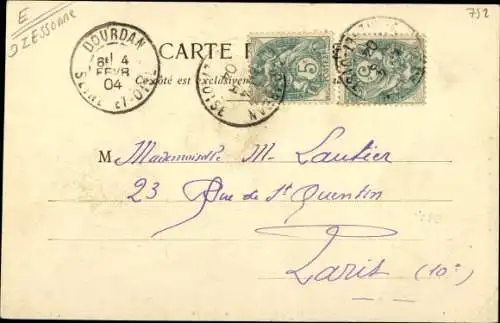 E
ESSONNE
752
DOURDAN
8E 4
FEVR
04
SEINE-ET-OISE
CARTE P
Ce côté est exclusivem
5
5
M Mademoiselle M. Lautier
23 Rue de St Quentin
Paris (10e